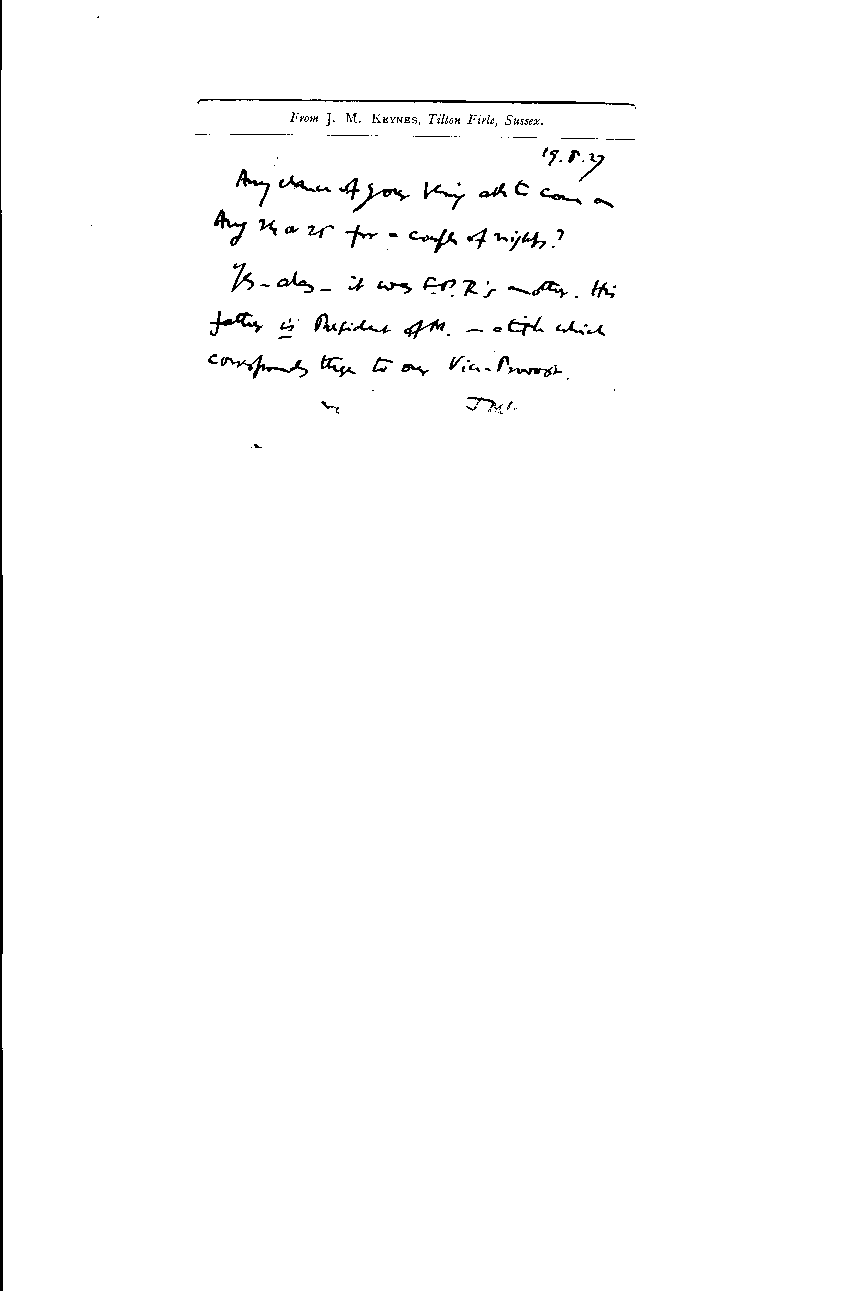 From J. M. KEYNES, Tilton Firle, Sussex.
19.8.27
Any chance of your being able to come on
Aug 24 or 25 for a couple of nights?
Yes – alas – it was F.P.R's mother. His
father is President of M. – a title which
corresponds there to our Vice-Provost.
JMK